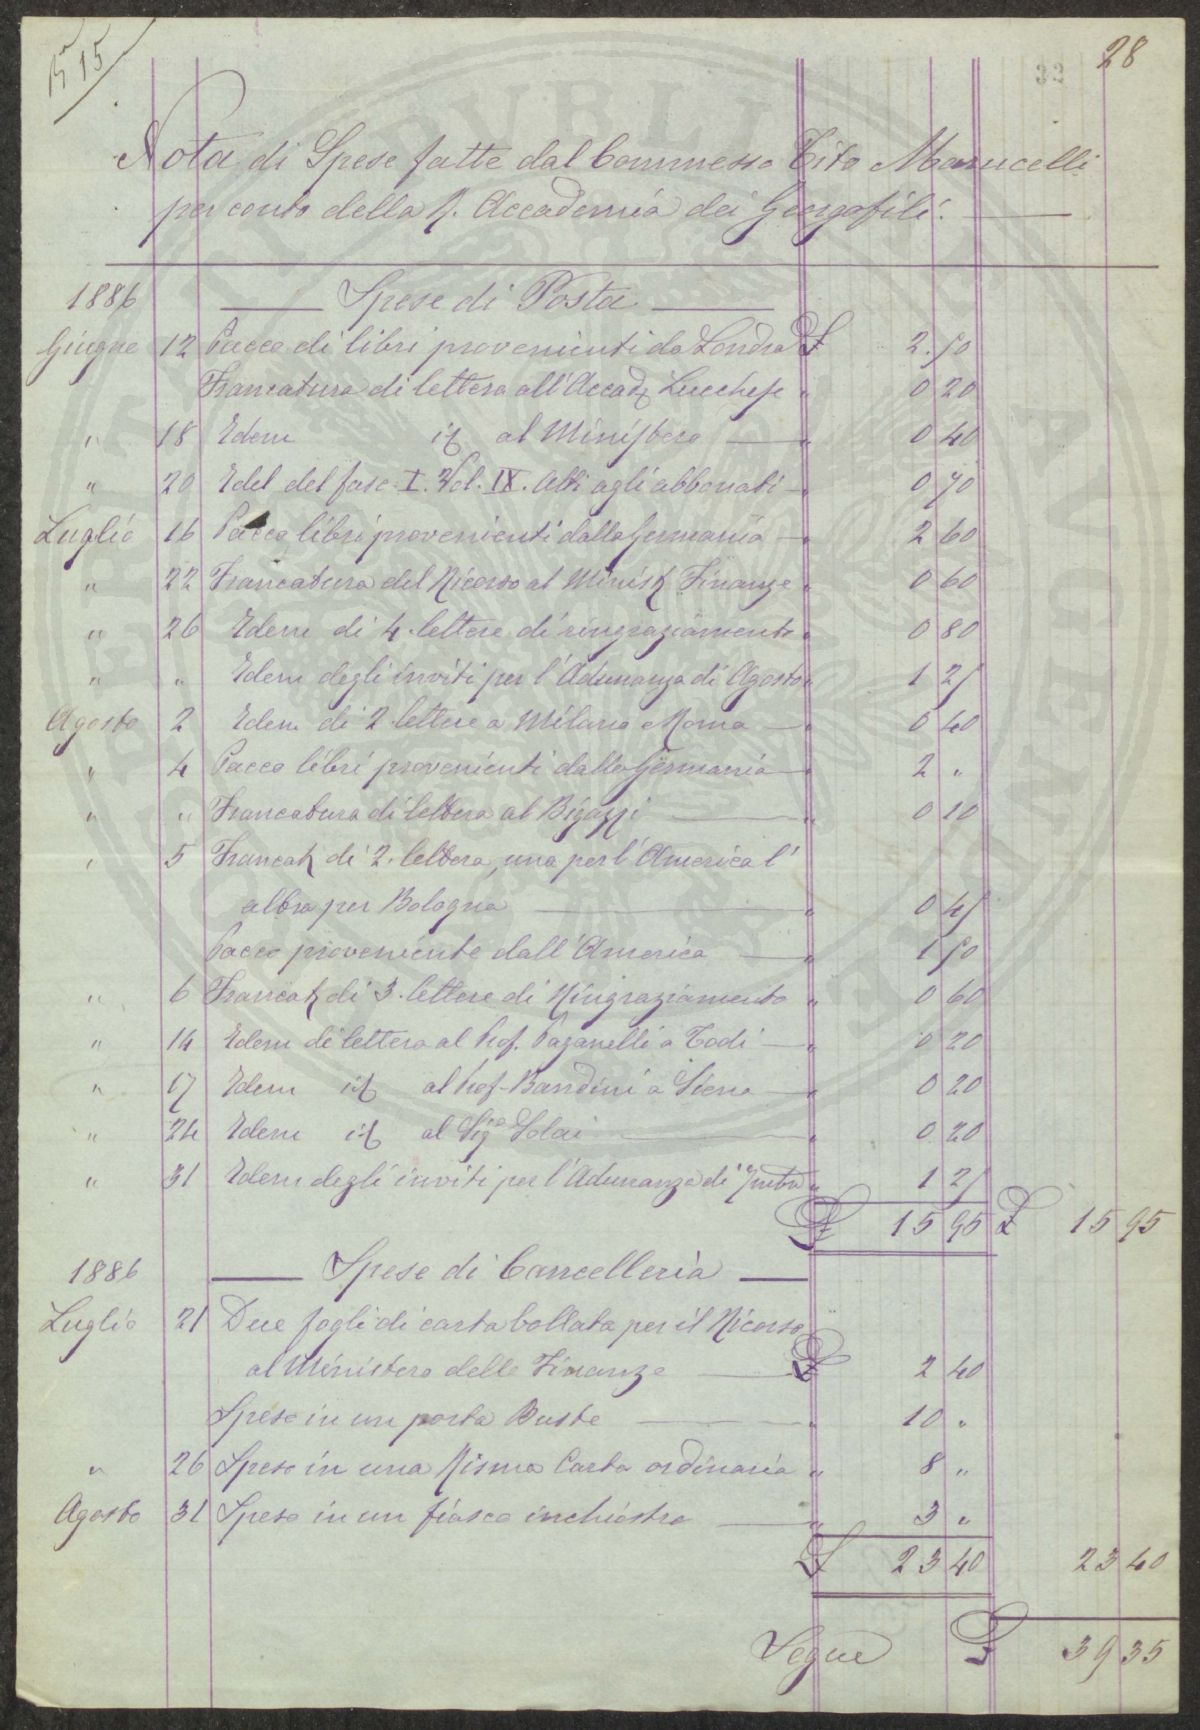 15
28
Nota di Spese fatte dal Commesso Tito Marucelli
per conto della R. Accademia dei Georgofili.
1886 Spese di Posta
Giugno 12 Pacco di libri provenienti da Londra £ 2.50
Francatura di lettera all'Accad. Lucchese " 0 20
" 18 Edem id al Ministero " 0 40
" 20 Edel del fasc. I. Vol. IX. Atti agli abbonati " 0 70
Luglio 16 Pacco libri provenienti dalla Germania " 2 60
" 22 Francatura del Ricorso al Minist. Finanze " 0 60
" 26 Edem di 4. lettere di ringraziamento " 0 80
" " Edem degli inviti per l'Adunanza di Agosto " 1 25
Agosto 2 Edem di 2 lettere a Milano e Roma " 0 40
" 4 Pacco libri provenienti dalla Germania " 2 "
" " Francatura di lettera al Bigazzi " 0 10
" 5 Francat. di 2. lettera, una per l'America l'
altra per Bologna " 0 45
Pacco proveniente dall'America " 1 50
" 6 Francat. di 3. lettere di Ringraziamento " 0 60
" 14 Edem di lettera al Prof. Paganelli a Todi " 0 20
" 17 Edem id al Prof. Bandini a Siena " 0 20
" 24 Edem id al Sigre Solai " 0 20
" 31 Edem degli inviti per l'Adunanza di 7mbre " 1 25
£ 15 95 £ 15 95
1886 Spese di Cancelleria
Luglio 21 Due fogli di carta bollata per il Ricorso
al Ministero delle Finanze £ 2 40
Spese in un porta Buste " 10 "
" 26 Spese in una Risma Carta ordinaria " 8 "
Agosto 31 Spese in un fiasco inchiostro " 3 "
£ 23 40 23 40
Segue £ 39 35